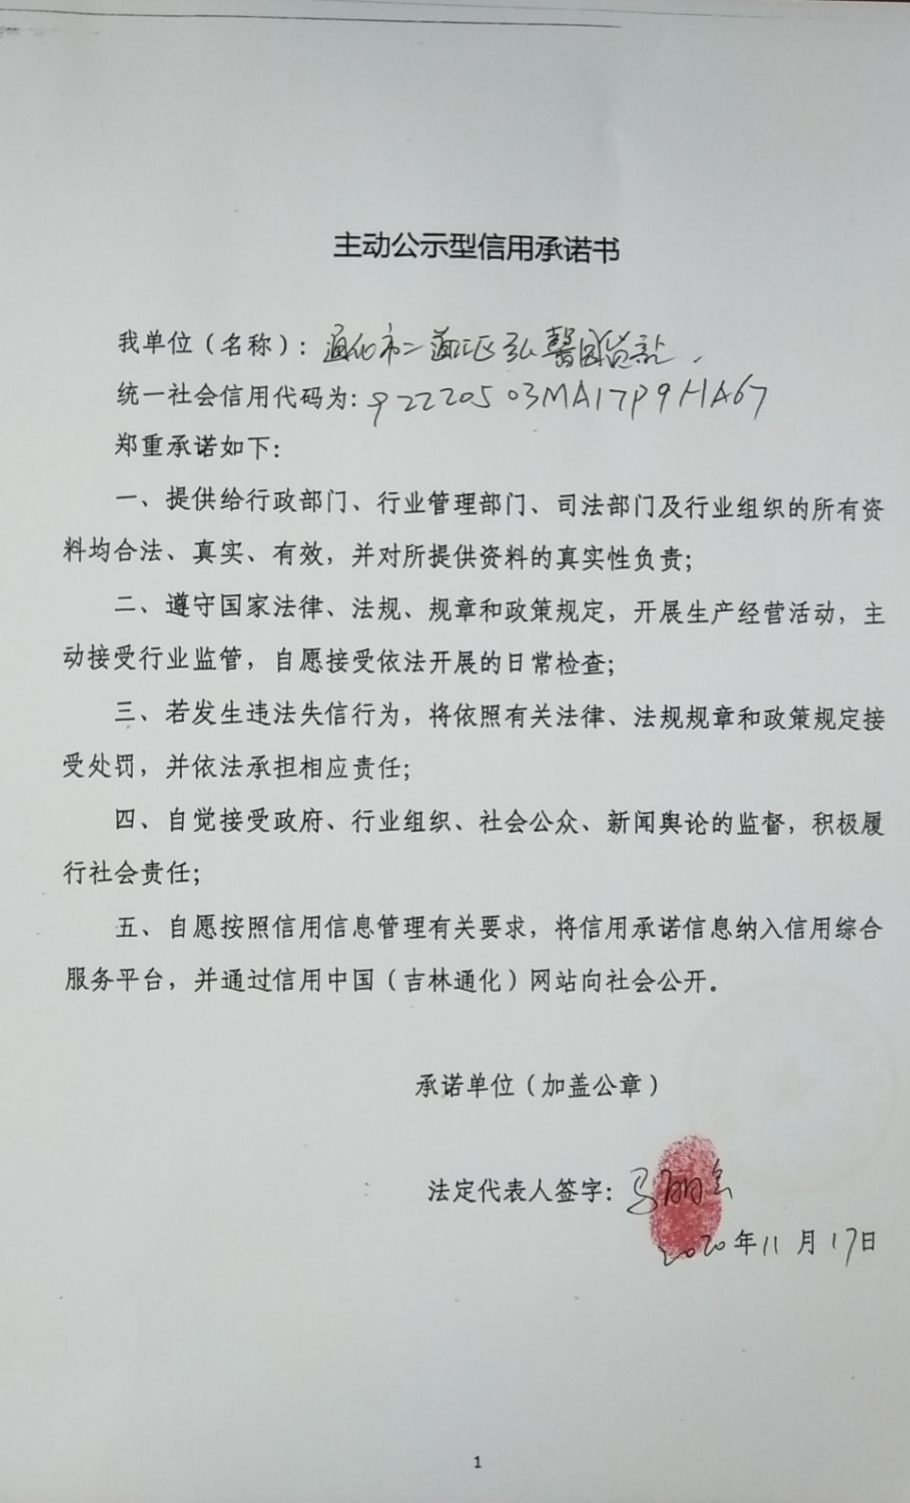 主动公示型信用承诺书
我单位(名称): 通化市二道江区弘馨
统一社会信用代码为: 92220503MA17P9HA67
郑重承诺如下:
一、提供给行政部门、行业管理部门、司法部门及行业组织的所有资
料均合法、真实、有效,并对所提供资料的真实性负责;
二、遵守国家法律、法规、规章和政策规定,开展生产经营活动,主
动接受行业监管,自愿接受依法开展的日常检查;
三、若发生违法失信行为,将依照有关法律、法规规章和政策规定接
受处罚,并依法承担相应责任;
四、自觉接受政府、行业组织、社会公众、新闻舆论的监督,积极履
行社会责任;
五、自愿按照信用信息管理有关要求,将信用承诺信息纳入信用综合
服务平台,并通过信用中国(吉林通化)网站向社会公开。
承诺单位(加盖公章)
法定代表人签字: 马
2020年11月17日
1